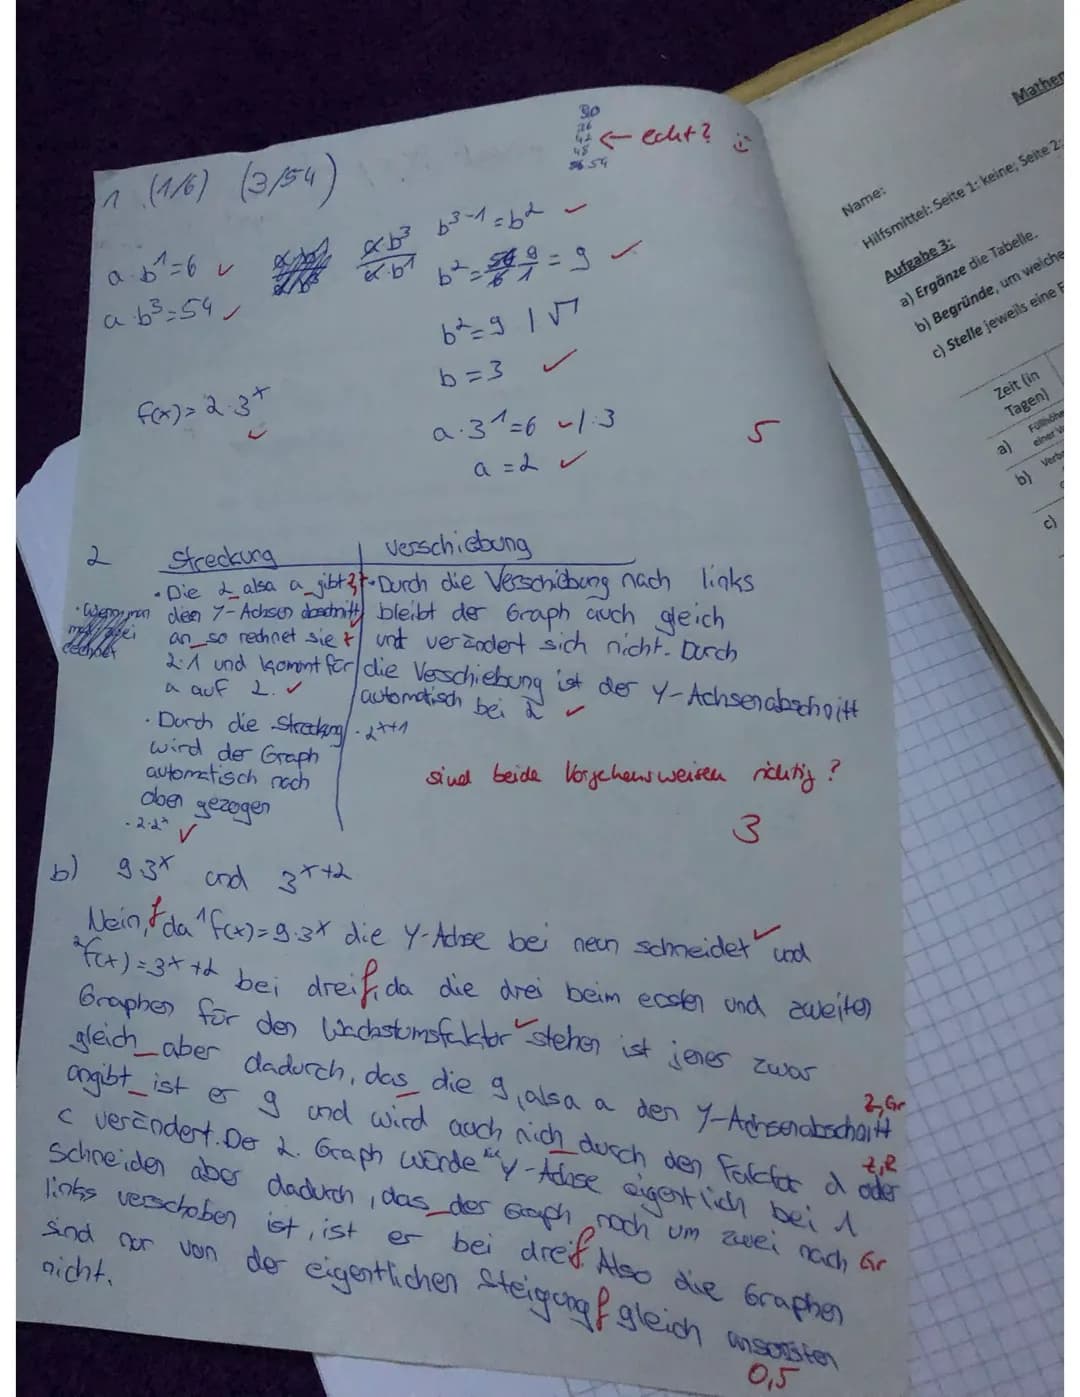 30
36
42
48
54
← echt? :)
1 (1/6) (3/54)
a·b¹=6 ✓
a·b³=54 ✓
a·b³
a·b¹
b³⁻¹=b² ✓
b²=54/6 9/1 = 9 ✓
b²=9 | √
b=3 ✓
f(x)=2·3ˣ
✓
a·3¹=6 ✓ |:3
a=2 ✓
5
2 Streckung | Verschiebung
• Die 2 also a gibt
den Y-Achsenabschnitt
an so rechnet sie
2·1 und kommt für
a auf 2. ✓
• Durch die Streckung
wird der Graph
automatisch nach
oben gezogen
• 2·2ˣ ✓
• Wenn man
• Durch die Verschiebung nach links
bleibt der Graph auch gleich
und verändert sich nicht. Durch
die Verschiebung ist der Y-Achsenabschnitt
automatisch bei 2 ✓
• 2ˣ⁺¹
sind beide Vorgehensweisen richtig?
3
b) 9·3ˣ und 3ˣ⁺²
Nein, f da ¹f(x)=9·3ˣ die Y-Achse bei neun schneidet ✓ und
²f(x)=3ˣ⁺² bei drei f, da die drei beim ersten und zweiten
Graphen für den Wachstumsfaktor ✓ stehen ist jenes zwar
gleich aber dadurch, das die 9, also a den Y-Achsenabschnitt Z,Gr
angibt ist er 9 und wird auch nich durch den Faktor d oder Z,R
c verändert. Der 2. Graph würde die Y-Achse eigentlich bei 1
schneiden aber dadurch, das der Graph noch um zwei nach Gr
links verschoben ist, ist er bei drei f. Also die Graphen
sind nur von der eigentlichen Steigung f gleich ansonsten
nicht.
0,5
Mathem
Name:
Hilfsmittel: Seite 1: keine; Seite 2:
Aufgabe 3:
a) Ergänze die Tabelle.
b) Begründe, um welche
c) Stelle jeweils eine F
Zeit (in
Tagen)
a) Füllhöhe
einer
b)
c)